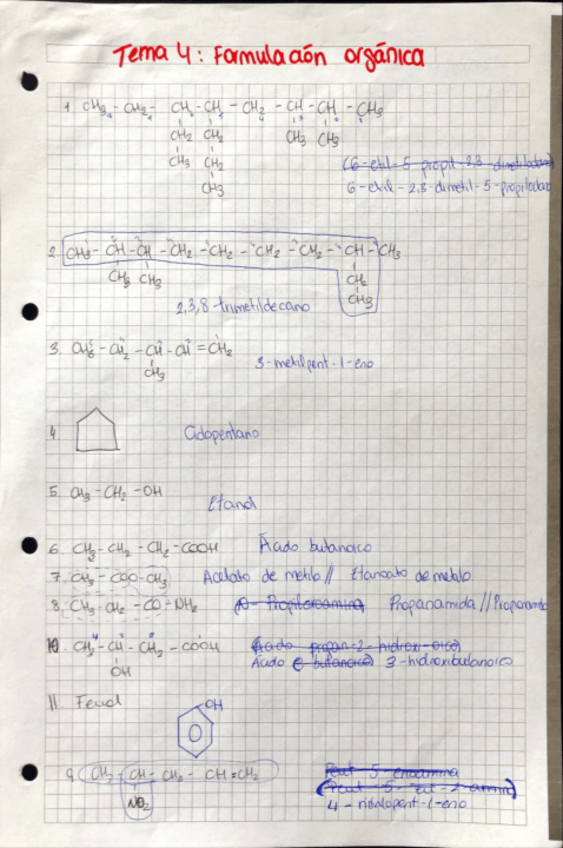 Tema 4: Formulación orgánica
1 CH3 - CH2 - CH - CH - CH2 - CH - CH - CH3
CH2 CH2 CH3 CH3
CH3 CH2
CH3
(6-etil-5 propil-2,3 dimetil
6-etil-2,3-dimetil-5-propil
2 CH3 - CH - CH - CH2 - CH2 - CH2 - CH2 - CH - CH3
CH3 CH3 CH2
CH3
2,3,8-trimetildecano
3. CH3 - CH2 - CH - CH = CH2
CH3
3-metilpent-1-eno
4. Ciclopentano
5. CH3 - CH2 - OH
Etanol
6. CH3 - CH2 - CH2 - COOH Ácido butanoico
7. CH3 - COO - CH3 Acetato de metilo // Etanoato de metilo
8. CH3 - CH2 - CO - NH2 Propanamida //
10. CH3 - CH - CH2 - COOH (Ácido propan-2-hidroxi-oico)
OH Ácido (butanoico) 3-hidroxibutanoico
11. Fenol
OH
9 CH3 - CH - CH2 - CH = CH2
NO2
Pent-5-enoamina
4-nitrilopent-1-eno